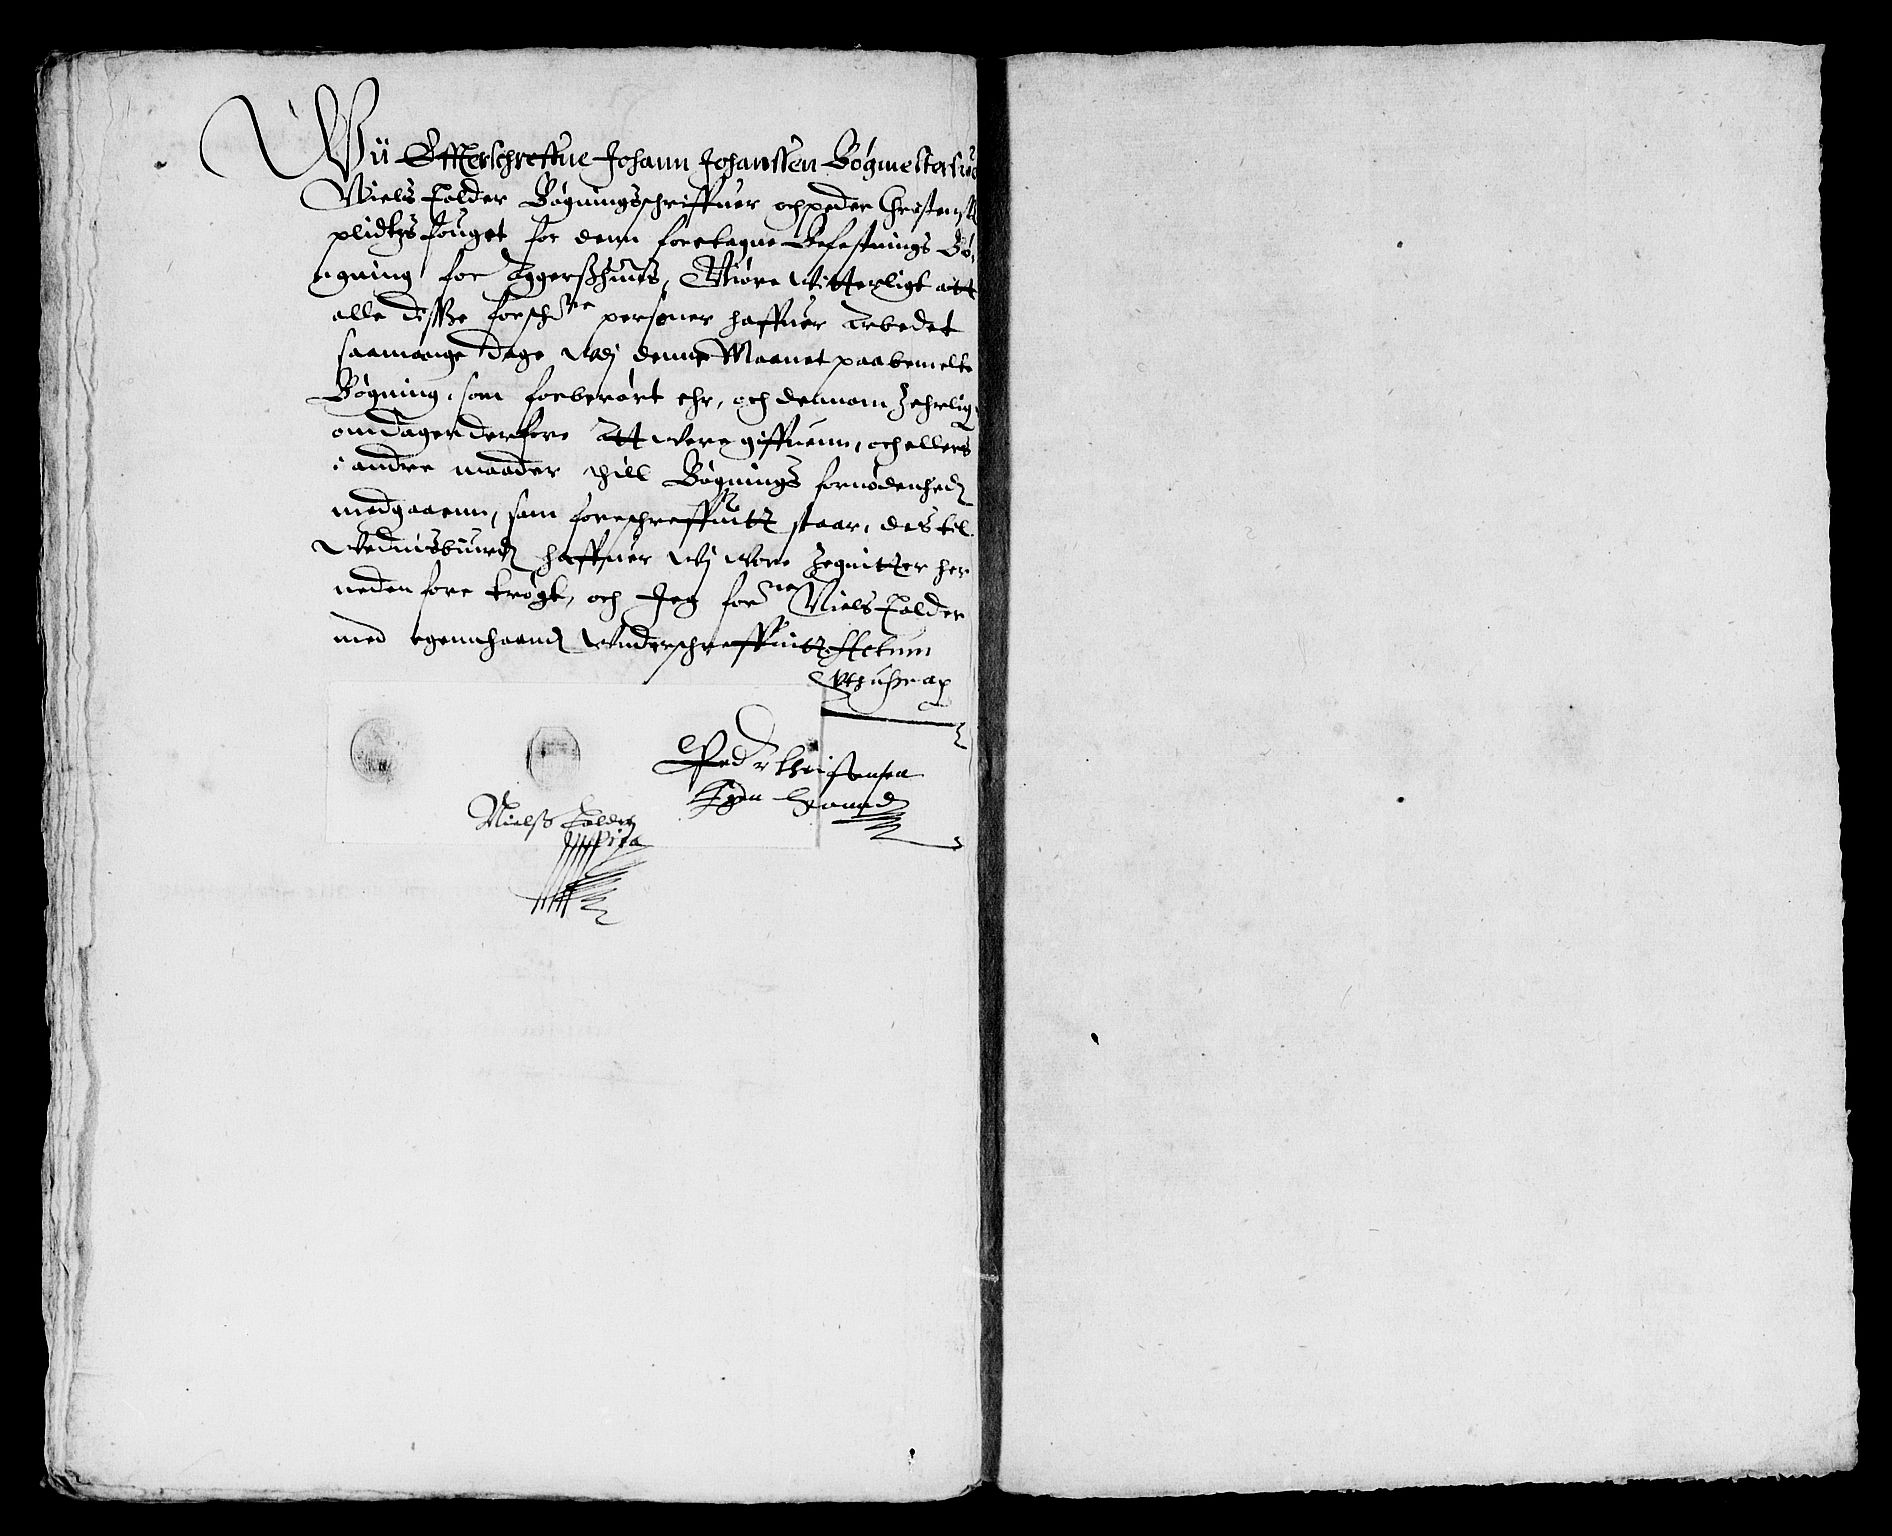 Wii Effterschreffne Johann Johanssen Bøgmester,
Niels Calder Bøgningsschriffuer och peder Christensen
plidtzfouget for denn foretagne Befestnings Bø,
gning for Aggerszhuus, Giøre witterligt att
alle disse forschne personer haffuer Arbedet
saamange dage udj denne Maanet paabemelte
Bøgning, som forberørt ehr, och dennom Jehrlig
om dagen derfore Att were giffuenn, och ellers
i andre maader till Bøgnings fornødenhed
medgaaenn, som foreschreffuitt staar, des til
Vidnisbiurd haffuer wj wore Zegnitter her
neden fore trøgt, och Jeg forne Niels Calder
med egennhaand Underschreffuitt Actum
Ut supra
Peder Christensen
Egen haannd
Nielss Calder